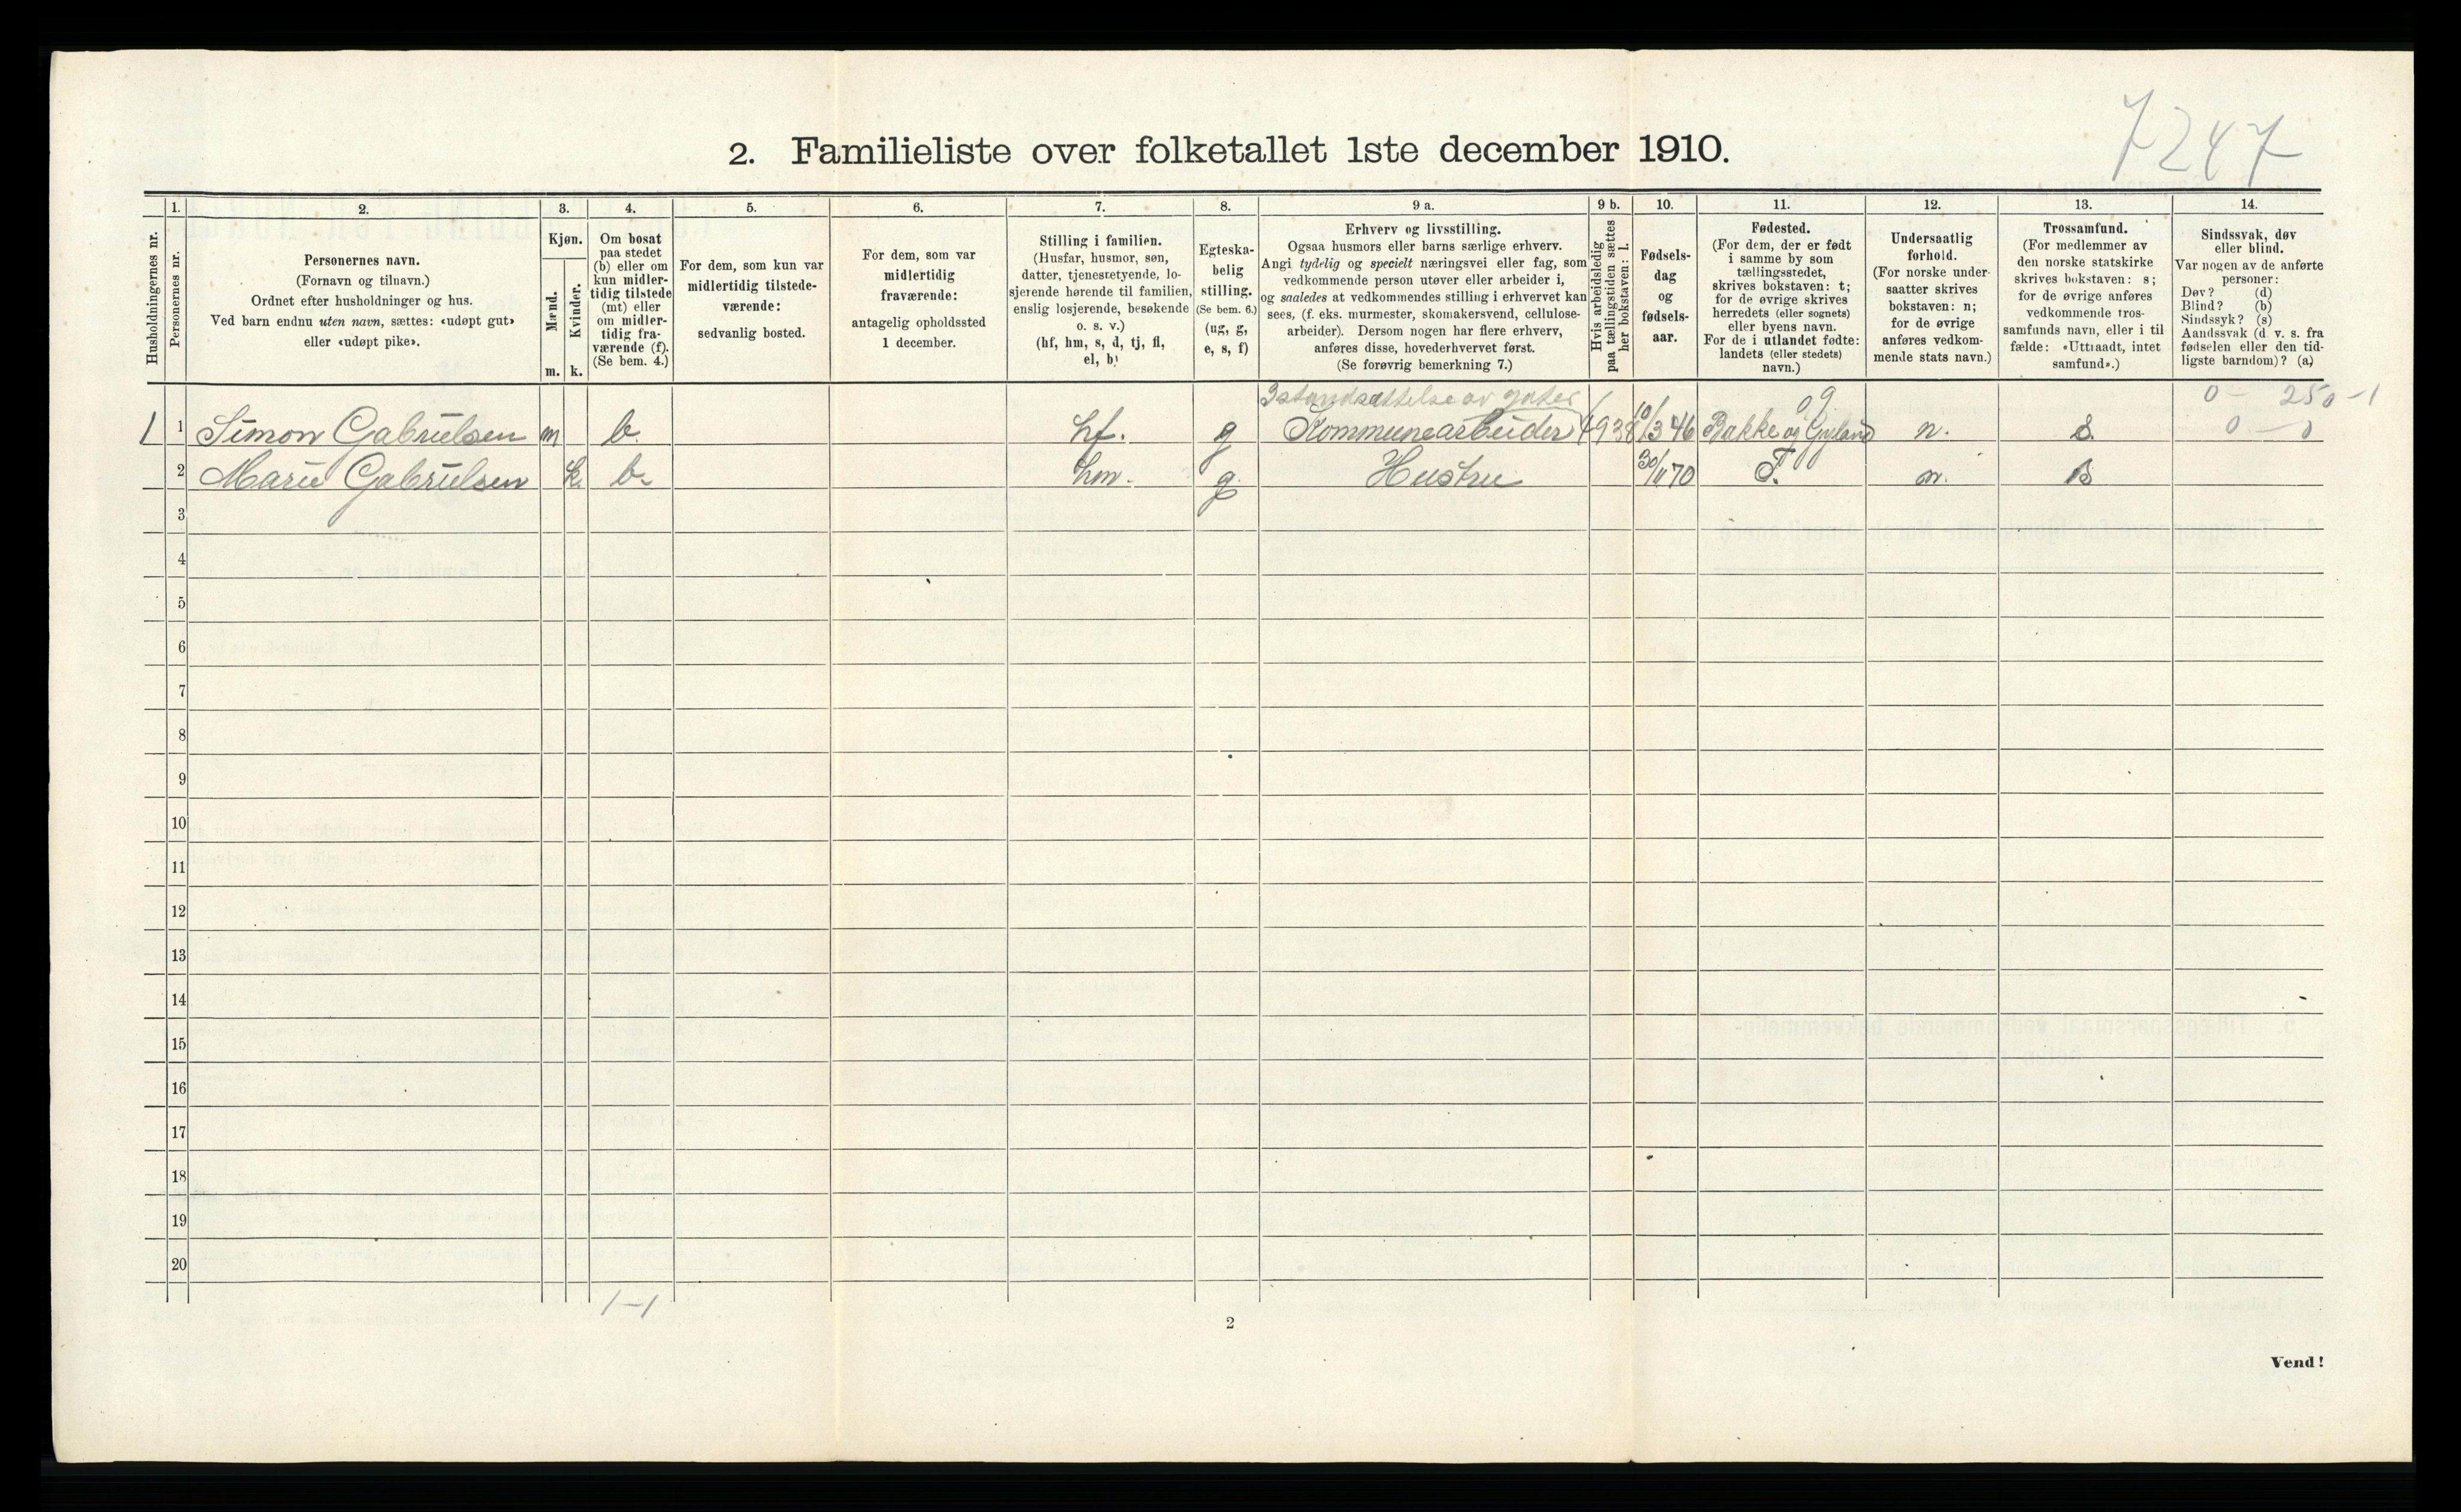 7247
2. Familieliste over folketallet 1ste december 1910.
Husholdningernes nr.
1.
Personernes nr.
2.
Personernes navn.
(Fornavn og tilnavn.)
Ordnet efter husholdninger og hus.
Ved barn endnu uten navn, sættes: «udøpt gut»
eller «udøpt pike».
3.
Kjøn.
Mænd.
Kvinder.
m. k.
4.
Om bosat
paa stedet
(b) eller om
kun midler-
tidig tilstede
(mt) eller
om midler-
tidig fra-
værende (f).
(Se bem. 4.)
5.
For dem, som kun var
midlertidig tilstede-
værende:
sedvanlig bosted.
6.
For dem, som var
midlertidig
fraværende:
antagelig opholdssted
1 december.
7.
Stilling i familien.
(Husfar, husmor, søn,
datter, tjenestetyende, lo-
sjerende hørende til familien,
enslig losjerende, besøkende
o. s. v.)
(hf, hm, s, d, tj, fl,
el, b)
8.
Egteska-
belig
stilling.
(Se bem. 6.)
(ug, g,
e, s, f)
9 a.
Erhverv og livsstilling.
Ogsaa husmors eller barns særlige erhverv.
Angi tydelig og specielt næringsvei eller fag, som
vedkommende person utøver eller arbeider i,
og saaledes at vedkommendes stilling i erhvervet kan
sees, (f. eks. murmester, skomakersvend, cellulose-
arbeider). Dersom nogen har flere erhverv,
anføres disse, hovederhvervet først.
(Se forøvrig bemerkning 7.)
9 b.
Hvis arbeidsledig
paa tællingstiden sættes
her bokstaven: l.
10.
Fødsels-
dag
og
fødsels-
aar.
11.
Fødested.
(For dem, der er født
i samme by som
tællingsstedet,
skrives bokstaven: t;
for de øvrige skrives
herredets (eller sognets)
eller byens navn.
For de i utlandet fødte:
landets (eller stedets)
navn.)
12.
Undersaatlig
forhold.
(For norske under-
saatter skrives
bokstaven: n;
for de øvrige
anføres vedkom-
mende stats navn.)
13.
Trossamfund.
(For medlemmer av
den norske statskirke
skrives bokstaven: s;
for de øvrige anføres
vedkommende tros-
samfunds navn, eller i til
fælde: «Uttraadt, intet
samfund».)
14.
Sindssvak, døv
eller blind.
Var nogen av de anførte
personer:
Døv? (d)
Blind? (b)
Sindssyk? (s)
Aandssvak (d. v. s. fra
fødselen eller den tid-
ligste barndom)? (a)
Istandsættelse av gater 09 0 - 250-1
1 1 Simon Gabrielsen m b. hf. g Kommunearbeider 4938 10/3 46 Bakke og Gyland n. S. 0 - 0
2 Marie Gabrielsen k. b. hm. g. Hustru 30/11 70 T. n. S
3
4
5
6
7
8
9
10
11
12
13
14
15
16
17
18
19
20
1-1
2
Vend!